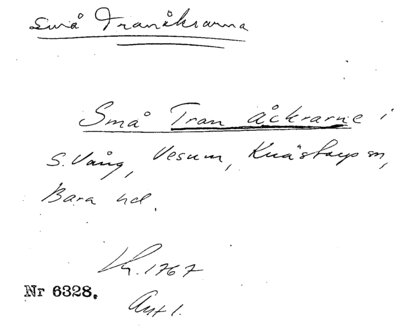 Små Tranåkrarna
Små Tran åckrarne i
S. Vång, Vesum, Knästorp sn,
Bara hd.
Lm. 1767
Nr 6328.
Akt 1.